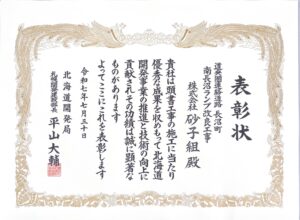 表彰状
道央圏連絡道路 長沼町
南長沼ランプ改良工事
株式会社 砂子組 殿
貴社は頭書工事の施工に当たり
優秀な成果を収めもって北海道
開発事業の推進と技術の向上に
貢献されその功績は誠に顕著な
ものがあります
よってここにこれを表彰します
令和七年七月三十日
北海道開発局
札幌開発建設部長
平山大輔